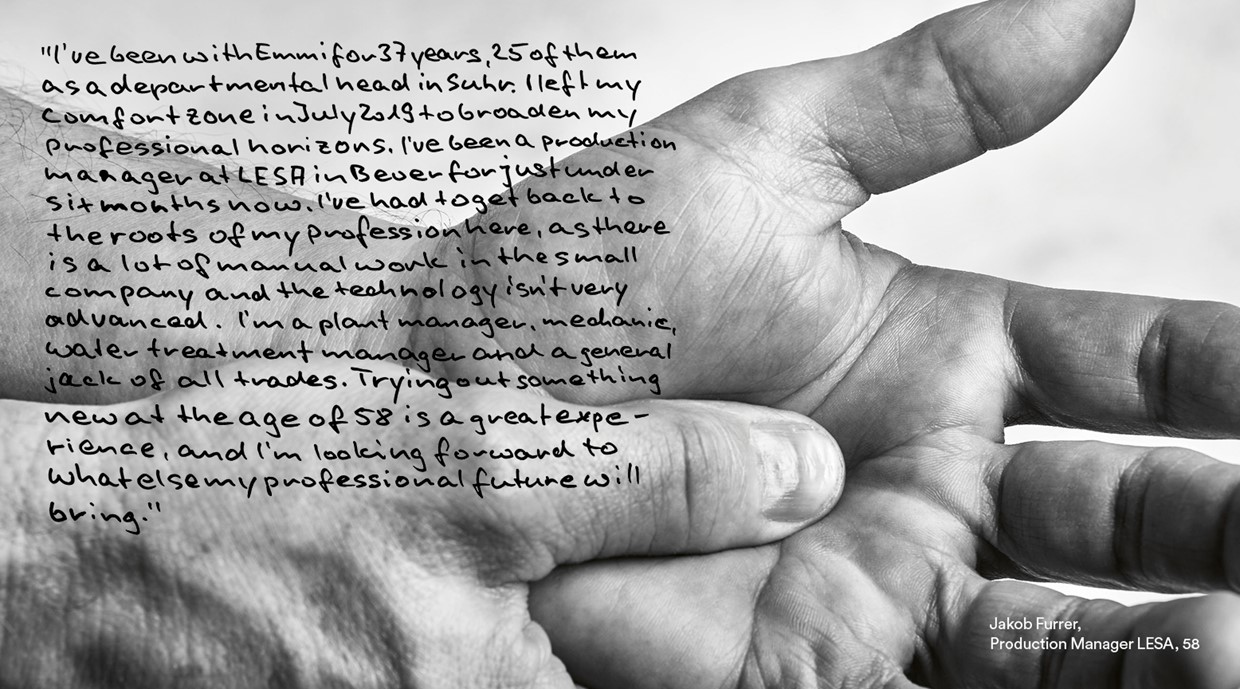 "I've been with Emmi for 37 years, 25 of them
as a departmental head in Suhr. I left my
comfort zone in July 2019 to broaden my
professional horizons. I've been a production
manager at LESA in Bever for just under
six months now. I've had to get back to
the roots of my profession here, as there
is a lot of manual work in the small
company and the technology isn't very
advanced. I'm a plant manager, mechanic,
water treatment manager and a general
jack of all trades. Trying out something
new at the age of 58 is a great expe-
rience, and I'm looking forward to
what else my professional future will
bring."
Jakob Furrer,
Production Manager LESA, 58